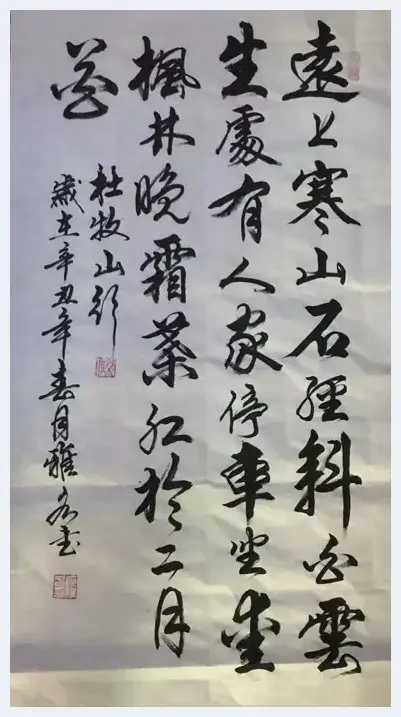 遠上寒山石徑斜白雲
生處有人家停車坐愛
楓林晚霜葉紅於二月
花
杜牧山行
歲在辛丑年春月雅书